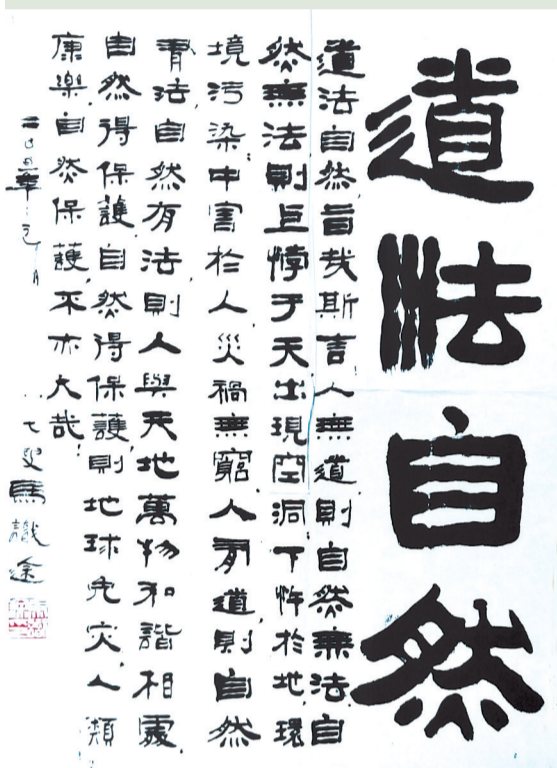 道法自然
道法自然,旨哉斯言!人無道,則自然無法,自
然無法,則上悖于天,出現空洞,下忤於地,環
境污染,中害於人,災禍無窮,人有道,則自然
有法,自然有法,則人與天地萬物和諧相處,
自然得保護,自然得保護,則地球免灾,人類
康樂,自然保護,不亦大哉!
年元月
叟馬識途